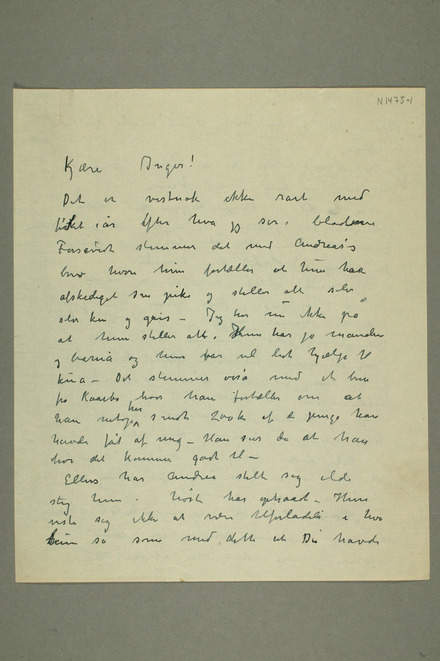 N1475-1
Kjære Inger!
Det er vistnok ikke rart med
i år efter hva jeg ser i bladene
Forøvrig stemmer det med Andreas's
brev hvori hun fortæller at hun har
afskediget sin pike og steller alt selv
ku og gris – Jeg tror nu ikke på
at hun steller alt. Hun har jo manden
og barna og hun har vel lidt hjælp til
kua – Det stemmer også med et brev
fra hvor han fortæller om at
han netop har sendt 200 kr af de penge han
havde fåt af mig – Han sier da at han
tror det kommer godt til –
Ellers har Andrea stelt seg ilde
hun. – Hun
viste sig ikke at være tilforladelig i hva
hun sa som med dette at Du havde